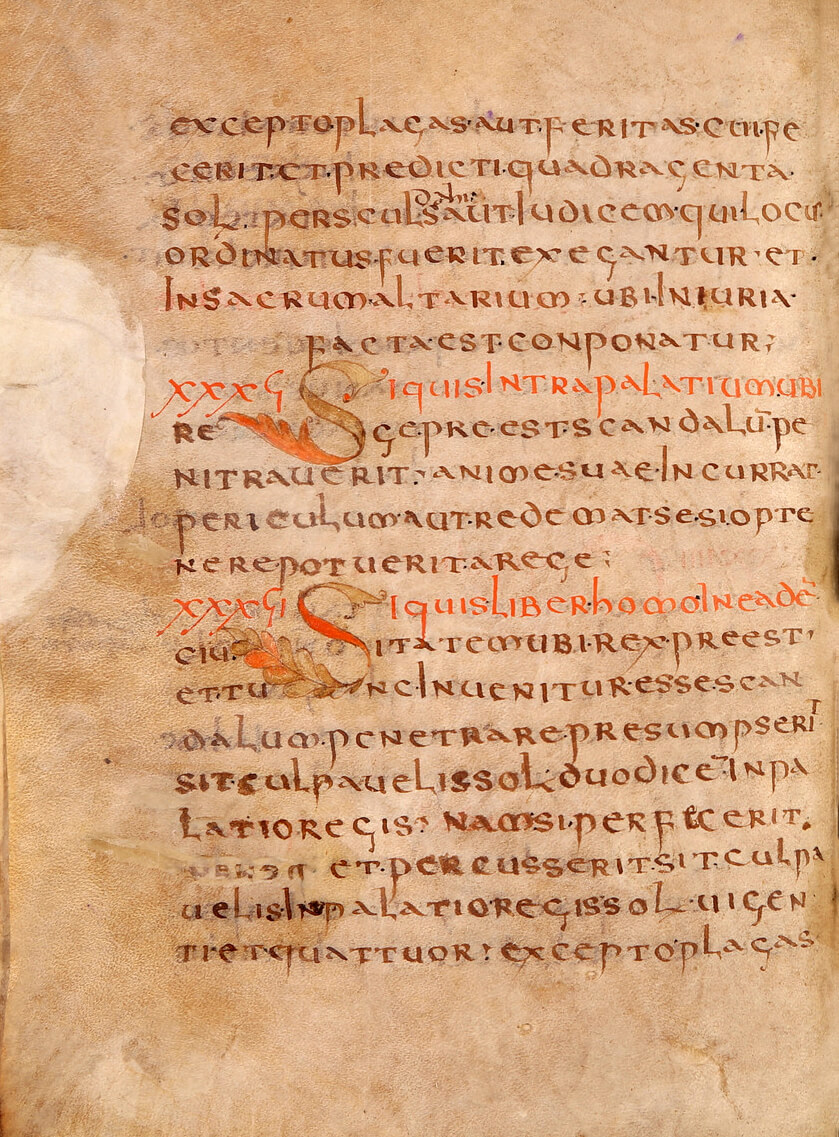 exceptoplagas·aut·feritas·cuife
cerit·et·predicti·quadragenta·
sol· persculs aut·iudicem·quilocu
ordinatus·fuerit·exegantur·et·
Insacrum·altarium·ubi·Iniuria·
facta·est·conponatur;
XXXG Siquis·Intrapalatium·ubi
re gepre·est·scandalū·pe
nitrauerit·animesuae·Incurrat·
periculum·aut·redemat·sesiopte
nerepotuerit·arege;
XXXGI Siquis·liber·homo·Ineadē
ciu· itatem·ubi·rex·preest·
et·tu nc·Inuenitur·esse·scan
dalum·penetrare·presumpserit
sit·culpauelis·sol·duodicē·Inpa
latioregis; namsi·perfecerit·
et·percusserit·sit·culpa
uelis·Inpalatioregis·sol· uigen
tietquattuor; exceptoplagas